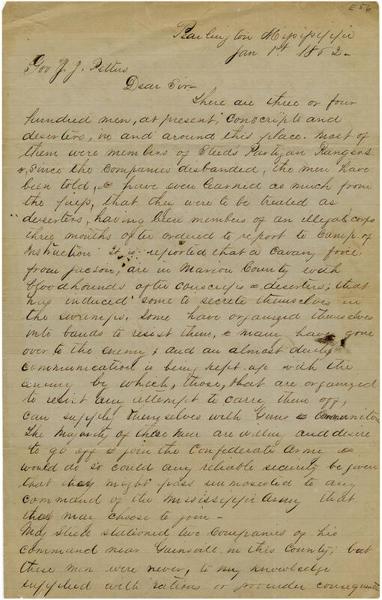 E56
Pearlington Mississippi
Jan 1st 1862-
Gov J. J. Pettus
Dear Sir-
There are three or four
hundred men, at present, conscripts and
deserters, in and around this place. Most of
them were members of Steeds Partizan Rangers
& since the Companies disbanded, the men have
been told, & have even learned as much from
the press, that they were to be treated as
deserters, having been members of an illegal corps
three months after ordered to report to Camp of
Instruction. It is reported that a Cavary force
from Jackson, are in Marion County with
bloodhounds after conscripts & deserters; that
has induced some to secrete themselves in
the swamps. Some have organized themselves
into bands to resist them, & many have gone
over to the enemy; and an almost daily
communication is being kept up with the
enemy by which, those, that are organized
to resist any attempt to carry them off,
can supply themselves with Guns &
The Majority of these men are willing and desire
to go off & join the Confederate Army &
would do so could any reliable security be given
that they might pass unmolested to any
command of the Mississippi Army that
they may choose to join-
Maj Steed stationed two Companies of his
command near Gainsville in this County; but
these men were never, to my knowledge
supplied with rations or provender consequently